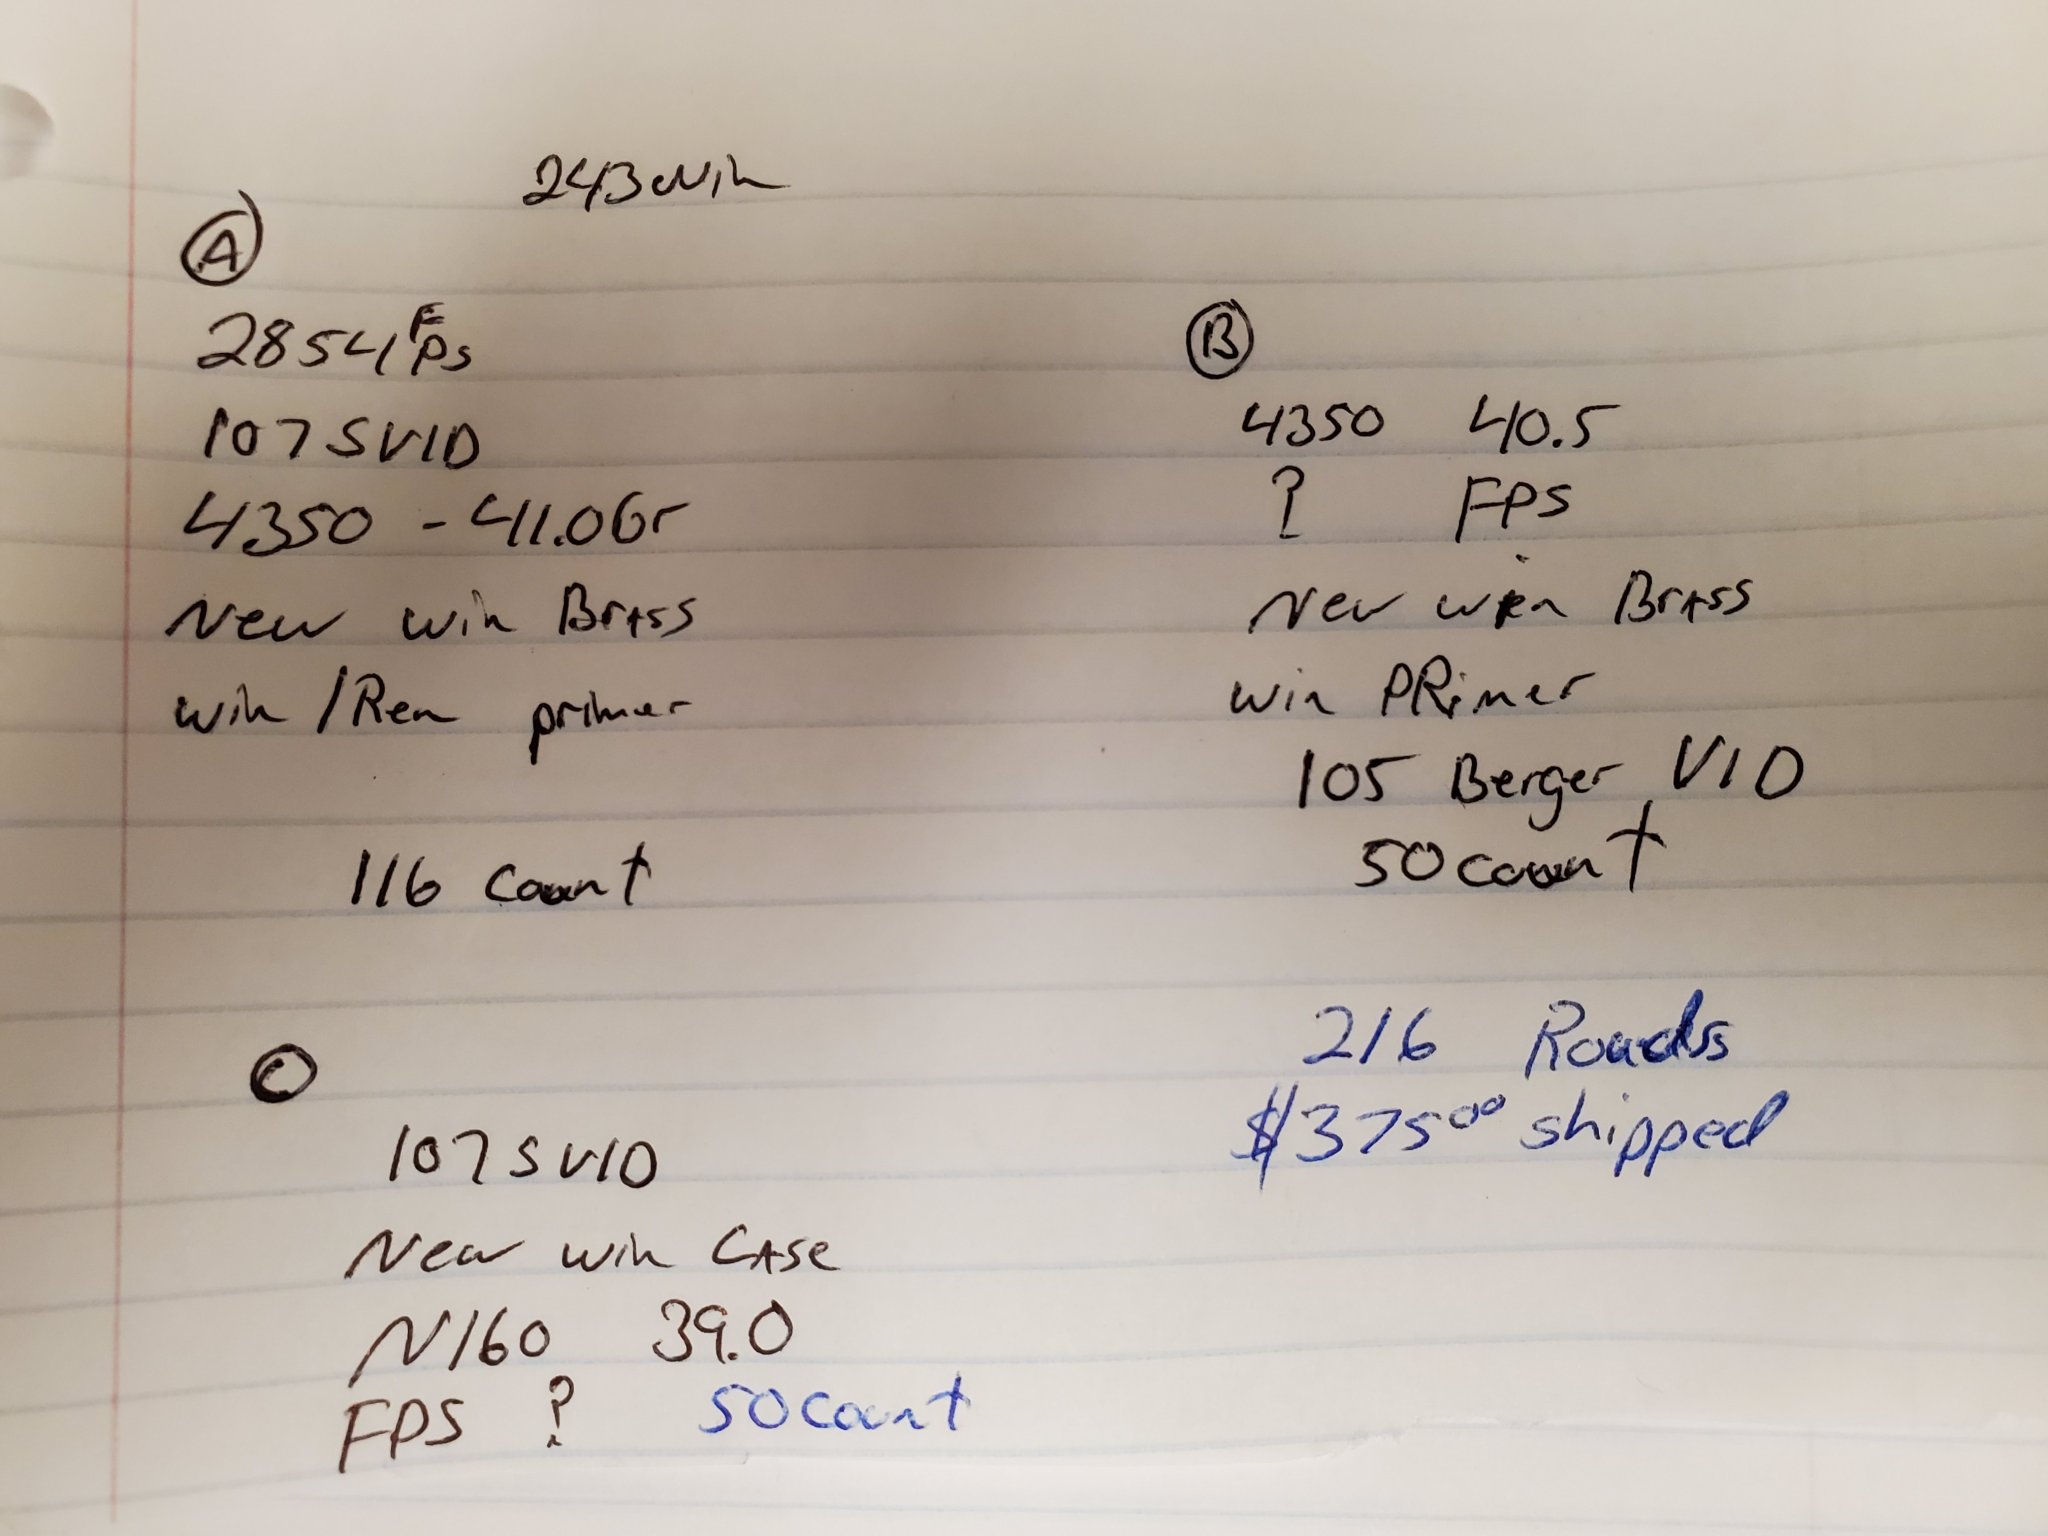 243 Win
A
2854 FPs
107 SVLD
4350 - 41.0Gr
New win Brass
win / Rem primer
116 count
B
4350 40.5
? FPS
New win Brass
win PRimer
105 Berger VLD
50 count
C
107 SVLD
New win CAse
N160 39.0
FPS ? 50 count
216 Rounds
$375 00 shipped